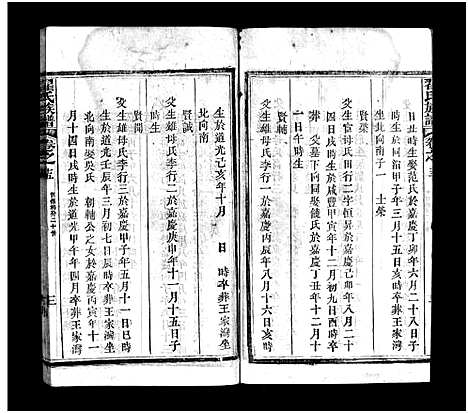 氏族譜 卷之
日巳時生娶范氏於嘉慶丁卯年六月二十八日
時生於同治甲子年三月十一日巳時卒葬
坐北向南子一 士榮
賢榮
爻生官母田氏行二字恒昇於嘉慶丁卯年八月二十
四日戌時生於咸豐甲寅年十二月初九日酉時卒
葬 爻墓下向同娶饒氏於嘉慶丁丑年十二月十
一日午時生
賢輔
爻生雄母氏李行一於嘉慶丙辰年八月十六日亥時
生於道光己亥年十月 日 時卒葬王家灣坐
北向南
賢誠
爻生雄母氏李行二於嘉慶庚申年十一月十五日子
時生
賢問
爻生雄母氏李行三於嘉慶甲子年五月十一日巳時
生於道光壬辰年三月初七日戌時卒葬王家灣坐
北向南娶吳氏 朝輔公之女於嘉慶丙寅年十一
月十四日戌時生於道光甲午年四月卒葬王家灣
氏族譜 卷之 三